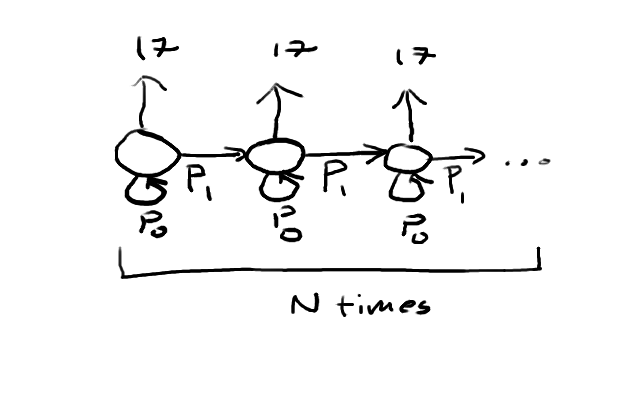 17 17 17
P1 P1 P1
P0 P0 P0
...
N times